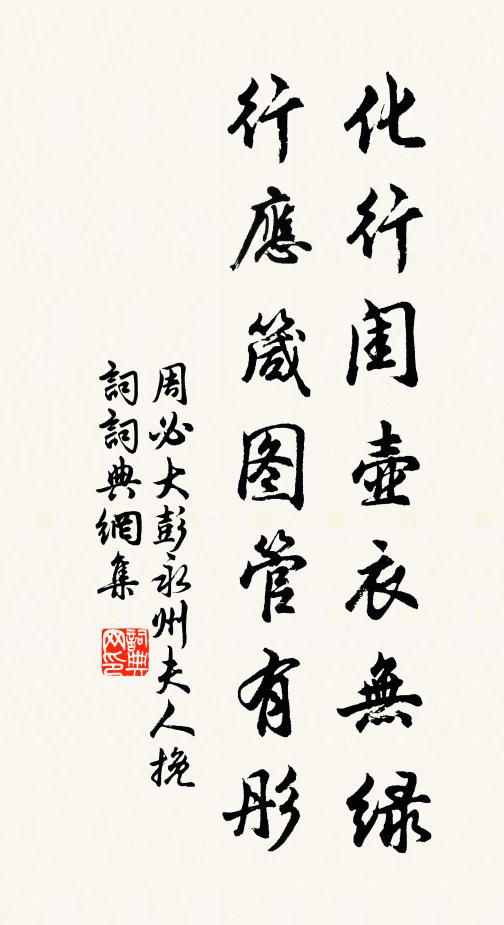 化行闺壺衣無緑
行應箴图管有彤
周必大彭永州夫人挽
詞詞典網集
詞典网印